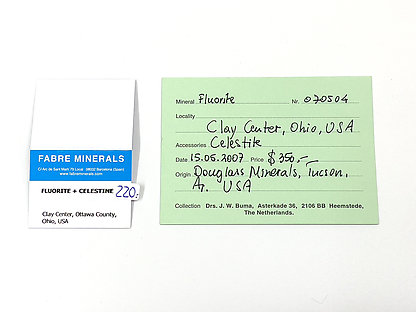 FABRE MINERALS
C/ Arc de Sant Martí 79 Local 08032 Barcelona (Spain)
www.fabreminerals.com
FLUORITE + CELESTINE
220.-
Clay Center, Ottawa County,
Ohio, USA
Mineral Fluorite Nr. 070504
Locality
Clay Center, Ohio, USA
Accessories Celestite
Date 15.05.2007 Price $ 350,-
Origin Douglass Minerals, Tucson,
Ar. USA
Collection Drs. J. W. Buma, Asterkade 36, 2106 BB Heemstede,
The Netherlands.